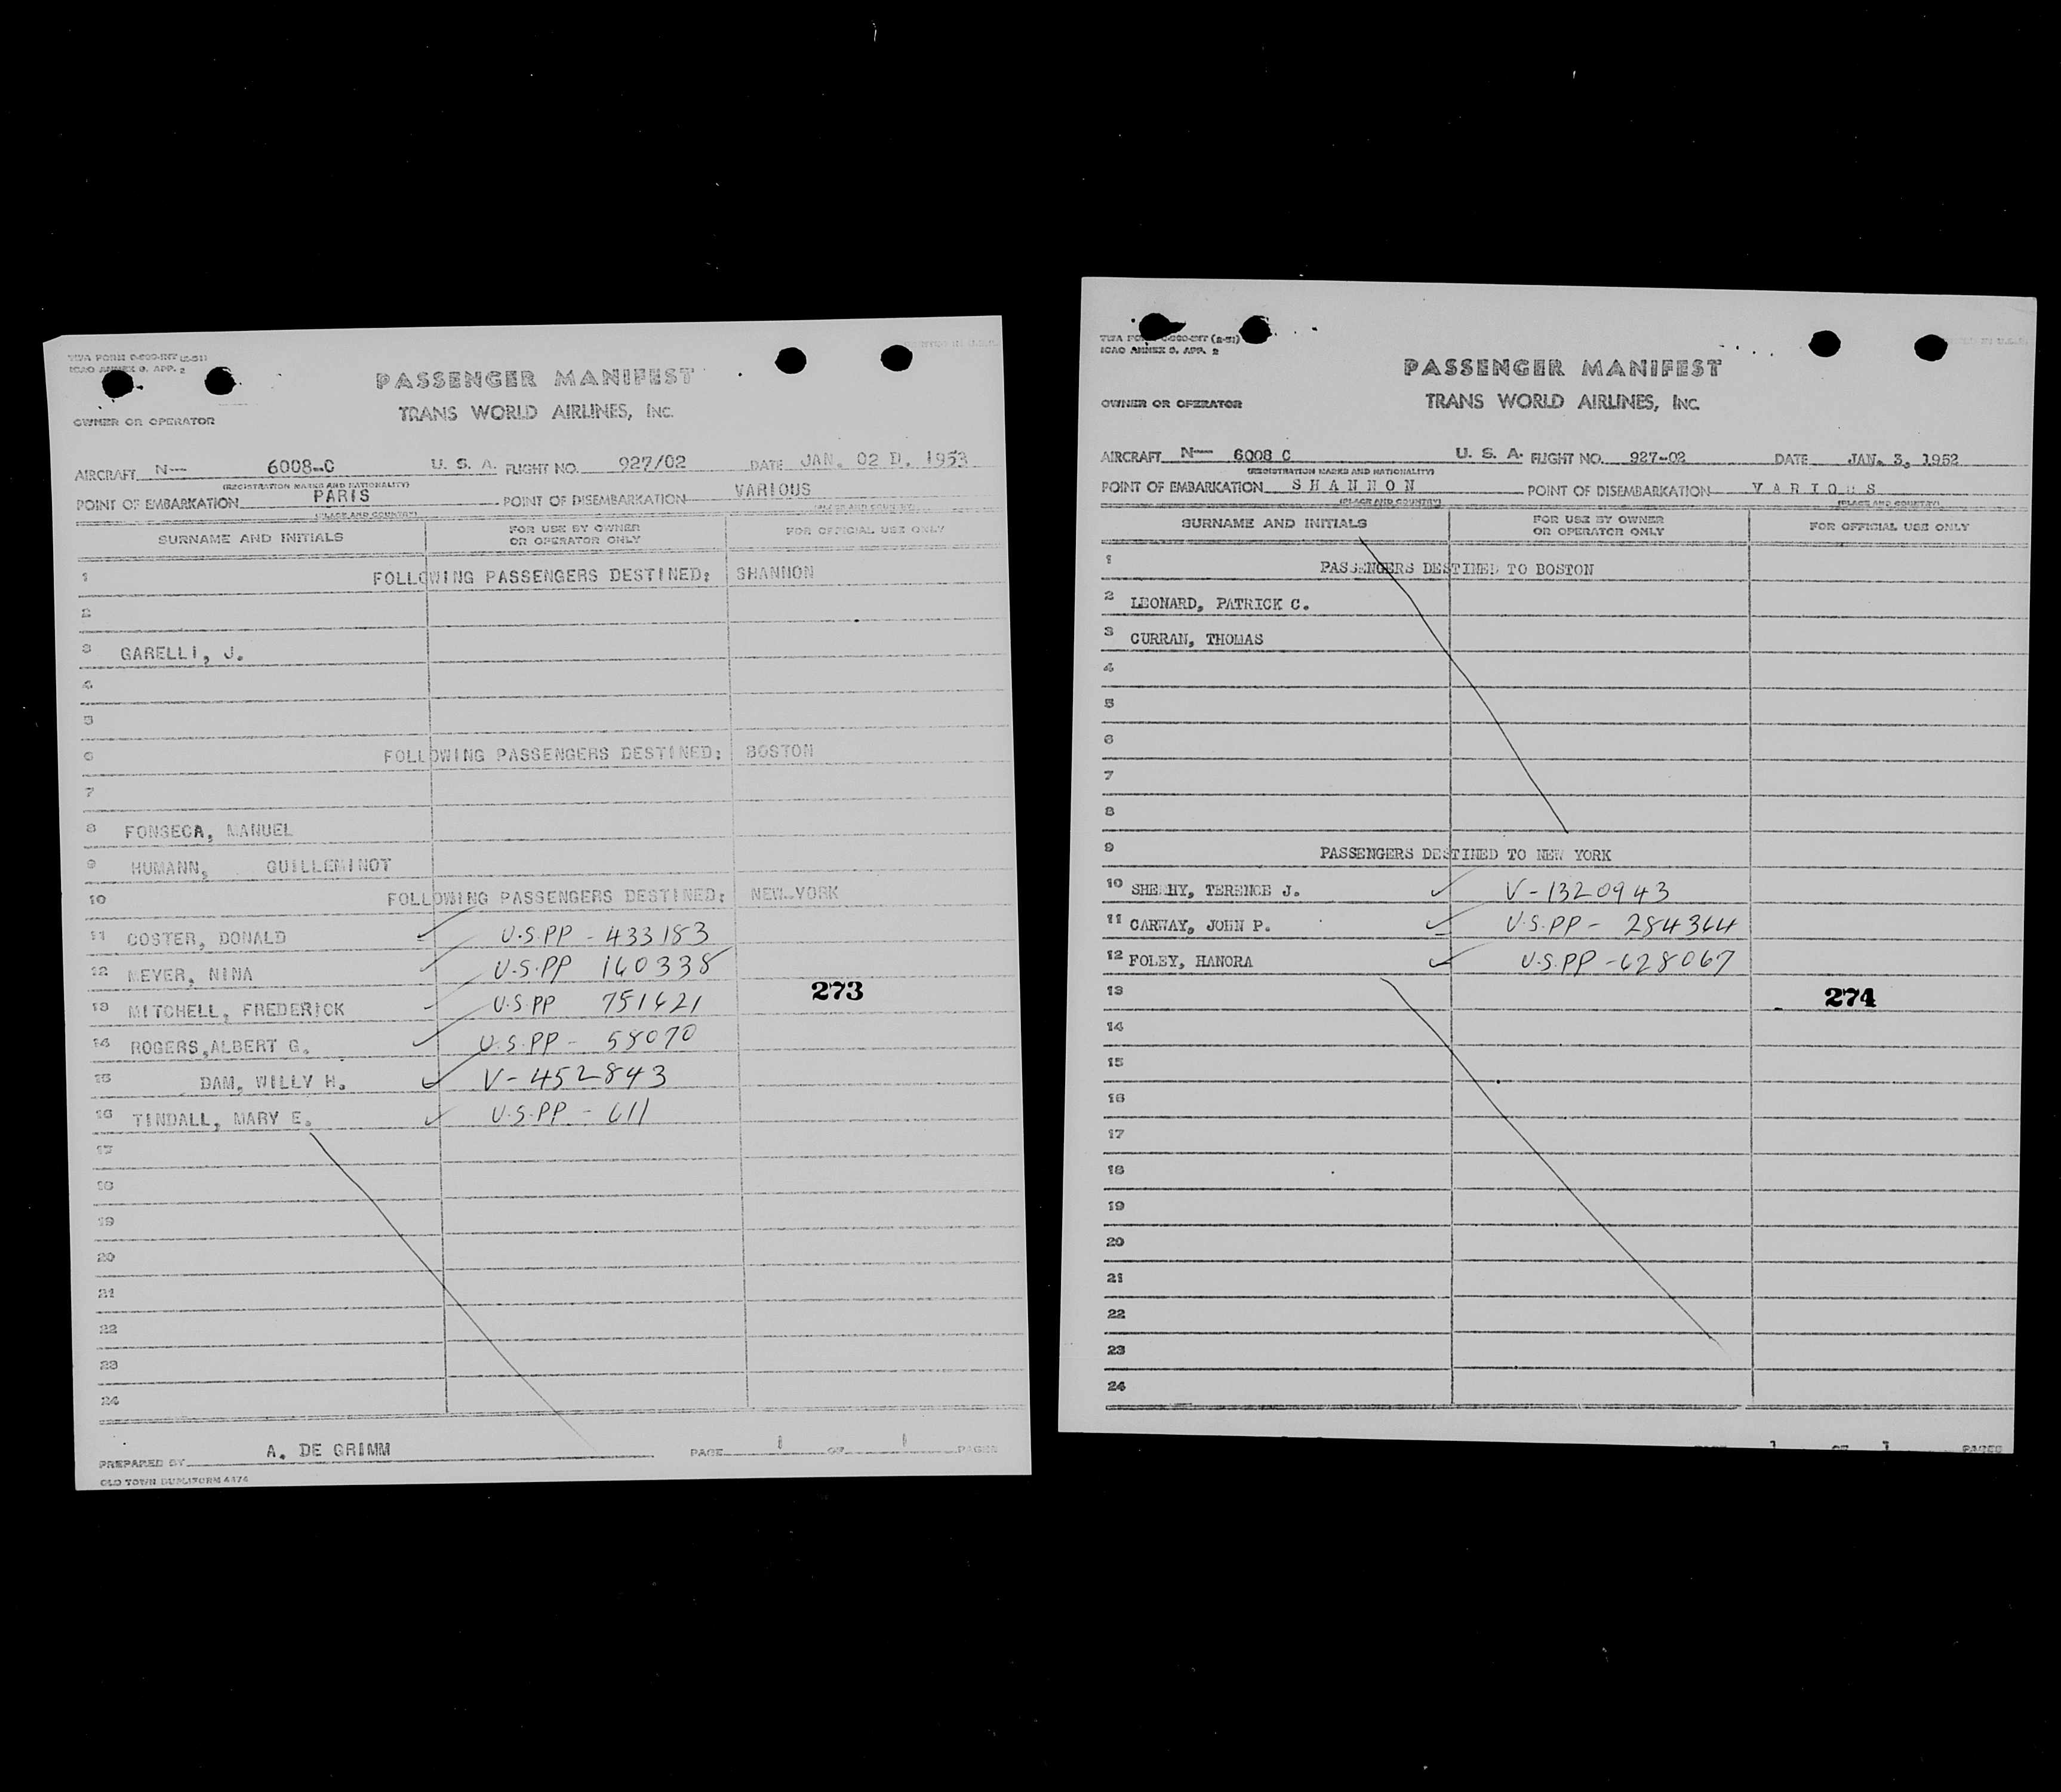 TWA FORM
ICAO ANNEX 9, APP. 2
PASSENGER MANIFEST
OWNER OR OPERATOR
TRANS WORLD AIRLINES, INC.
AIRCRAFT N— 6008-C U. S. A. FLIGHT NO. 927/02 DATE JAN. 02 D. 1953
(REGISTRATION MARKS AND NATIONALITY)
POINT OF EMBARKATION PARIS POINT OF DISEMBARKATION VARIOUS
(PLACE AND COUNTRY) (PLACE AND COUNTRY)
SURNAME AND INITIALS FOR USE BY OWNER OR OPERATOR ONLY FOR OFFICIAL USE ONLY
1 FOLLOWING PASSENGERS DESTINED: SHANNON
2
3 GARELLI, J.
4
5
6 FOLLOWING PASSENGERS DESTINED: BOSTON
7
8 FONSECA, MANUEL
9 HUMANN, GUILLEMINOT
10 FOLLOWING PASSENGERS DESTINED: NEW-YORK
11 COSTER, DONALD ✓ U.S.PP - 433183
12 MEYER, NINA ✓ U.S.PP 160338
13 MITCHELL, FREDERICK ✓ U.S.PP 751621
273
14 ROGERS,ALBERT G. ✓ U.S.PP - 58070
15 DAM, WILLY H. ✓ V-452843
16 TINDALL, MARY E. ✓ U.S.PP - 611
17
18
19
20
21
22
23
24
PREPARED BY A. DE GRIMM PAGE 1 OF 1 PAGES
OLD TOWN DUPLIFORM 4474
TWA (2-51)
ICAO ANNEX 9, APP. 2
PASSENGER MANIFEST
OWNER OR OPERATOR
TRANS WORLD AIRLINES, INC.
AIRCRAFT N— 6008 C U. S. A. FLIGHT NO. 927-02 DATE JAN. 3, 1952
(REGISTRATION MARKS AND NATIONALITY)
POINT OF EMBARKATION SHANNON POINT OF DISEMBARKATION VARIOUS
(PLACE AND COUNTRY) (PLACE AND COUNTRY)
SURNAME AND INITIALS FOR USE BY OWNER OR OPERATOR ONLY FOR OFFICIAL USE ONLY
1 PASSENGERS DESTINED TO BOSTON
2 LEONARD, PATRICK C.
3 CURRAN, THOMAS
4
5
6
7
8
9 PASSENGERS DESTINED TO NEW YORK
10 SHEEHY, TERENCE J. ✓ V-1320943
11 CARWAY, JOHN P. ✓ U.S.PP - 284364
12 FOLEY, HANORA ✓ U.S.PP -628067
13
274
14
15
16
17
18
19
20
21
22
23
24
1 OF 1 PAGES